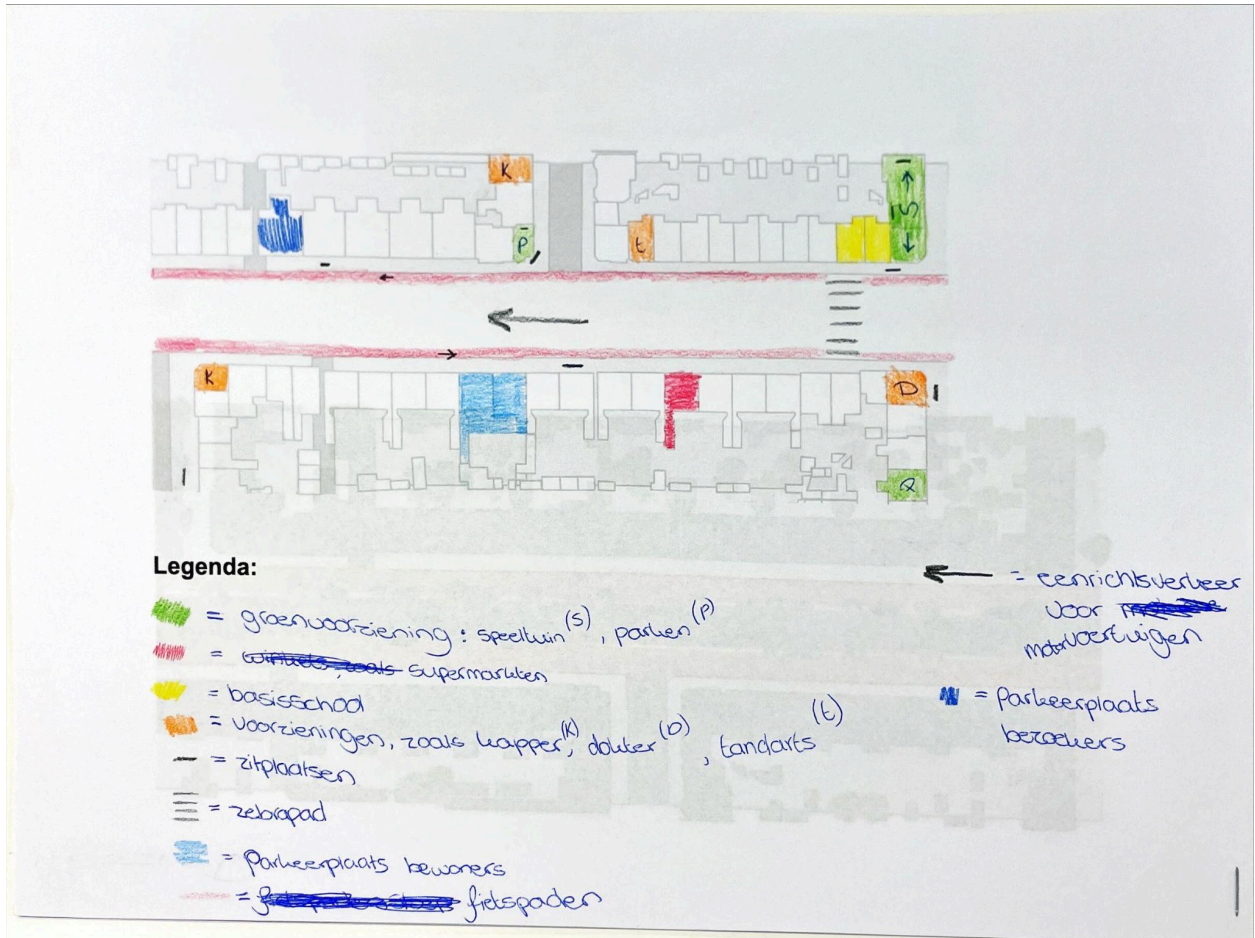 K
S
P
t
K
D
Q
Legenda:
= groenvoorziening: speeltuin (S), parken (P)
= supermarkten
= basisschool
= voorzieningen, zoals kapper (K), dokter (D), tandarts (t)
= zitplaatsen
= zebrapad
= parkeerplaats bewoners
= fietspaden
= eenrichtsverkeer
voor
motorvoertuigen
= parkeerplaats
bezoekers